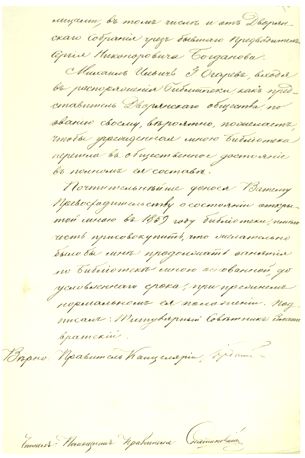 лицами, въ томъ числѣ и отъ Дворян-
скаго собранія чрезъ бывшаго Предводителя
Сергія Никаноровича Богданова.
Михаилъ Ильичъ Огаревъ, входя
въ распоряженія библіотеки какъ пред-
ставитель Дворянскаго общества по
званію своему, вѣроятно, пожелаетъ,
чтобы учрежденная мною библіотека
перешла въ общественное достояніе
въ полномъ ея составѣ.
Почтительнѣйше донося Вашему
Превосходительству о состояніи откры-
той мною въ 1859 году библіотеки, имѣю
честь присовокупить, что желательно
было бы мнѣ продолжать
библіотека мною основанной до
условленнаго срока, при прежнемъ
нормальномъ ея положеніи. Под-
писалъ: Титулярный Совѣтникъ
Вѣрно: Правитель Канцеляріи
Читалъ: Помощникъ Правителя